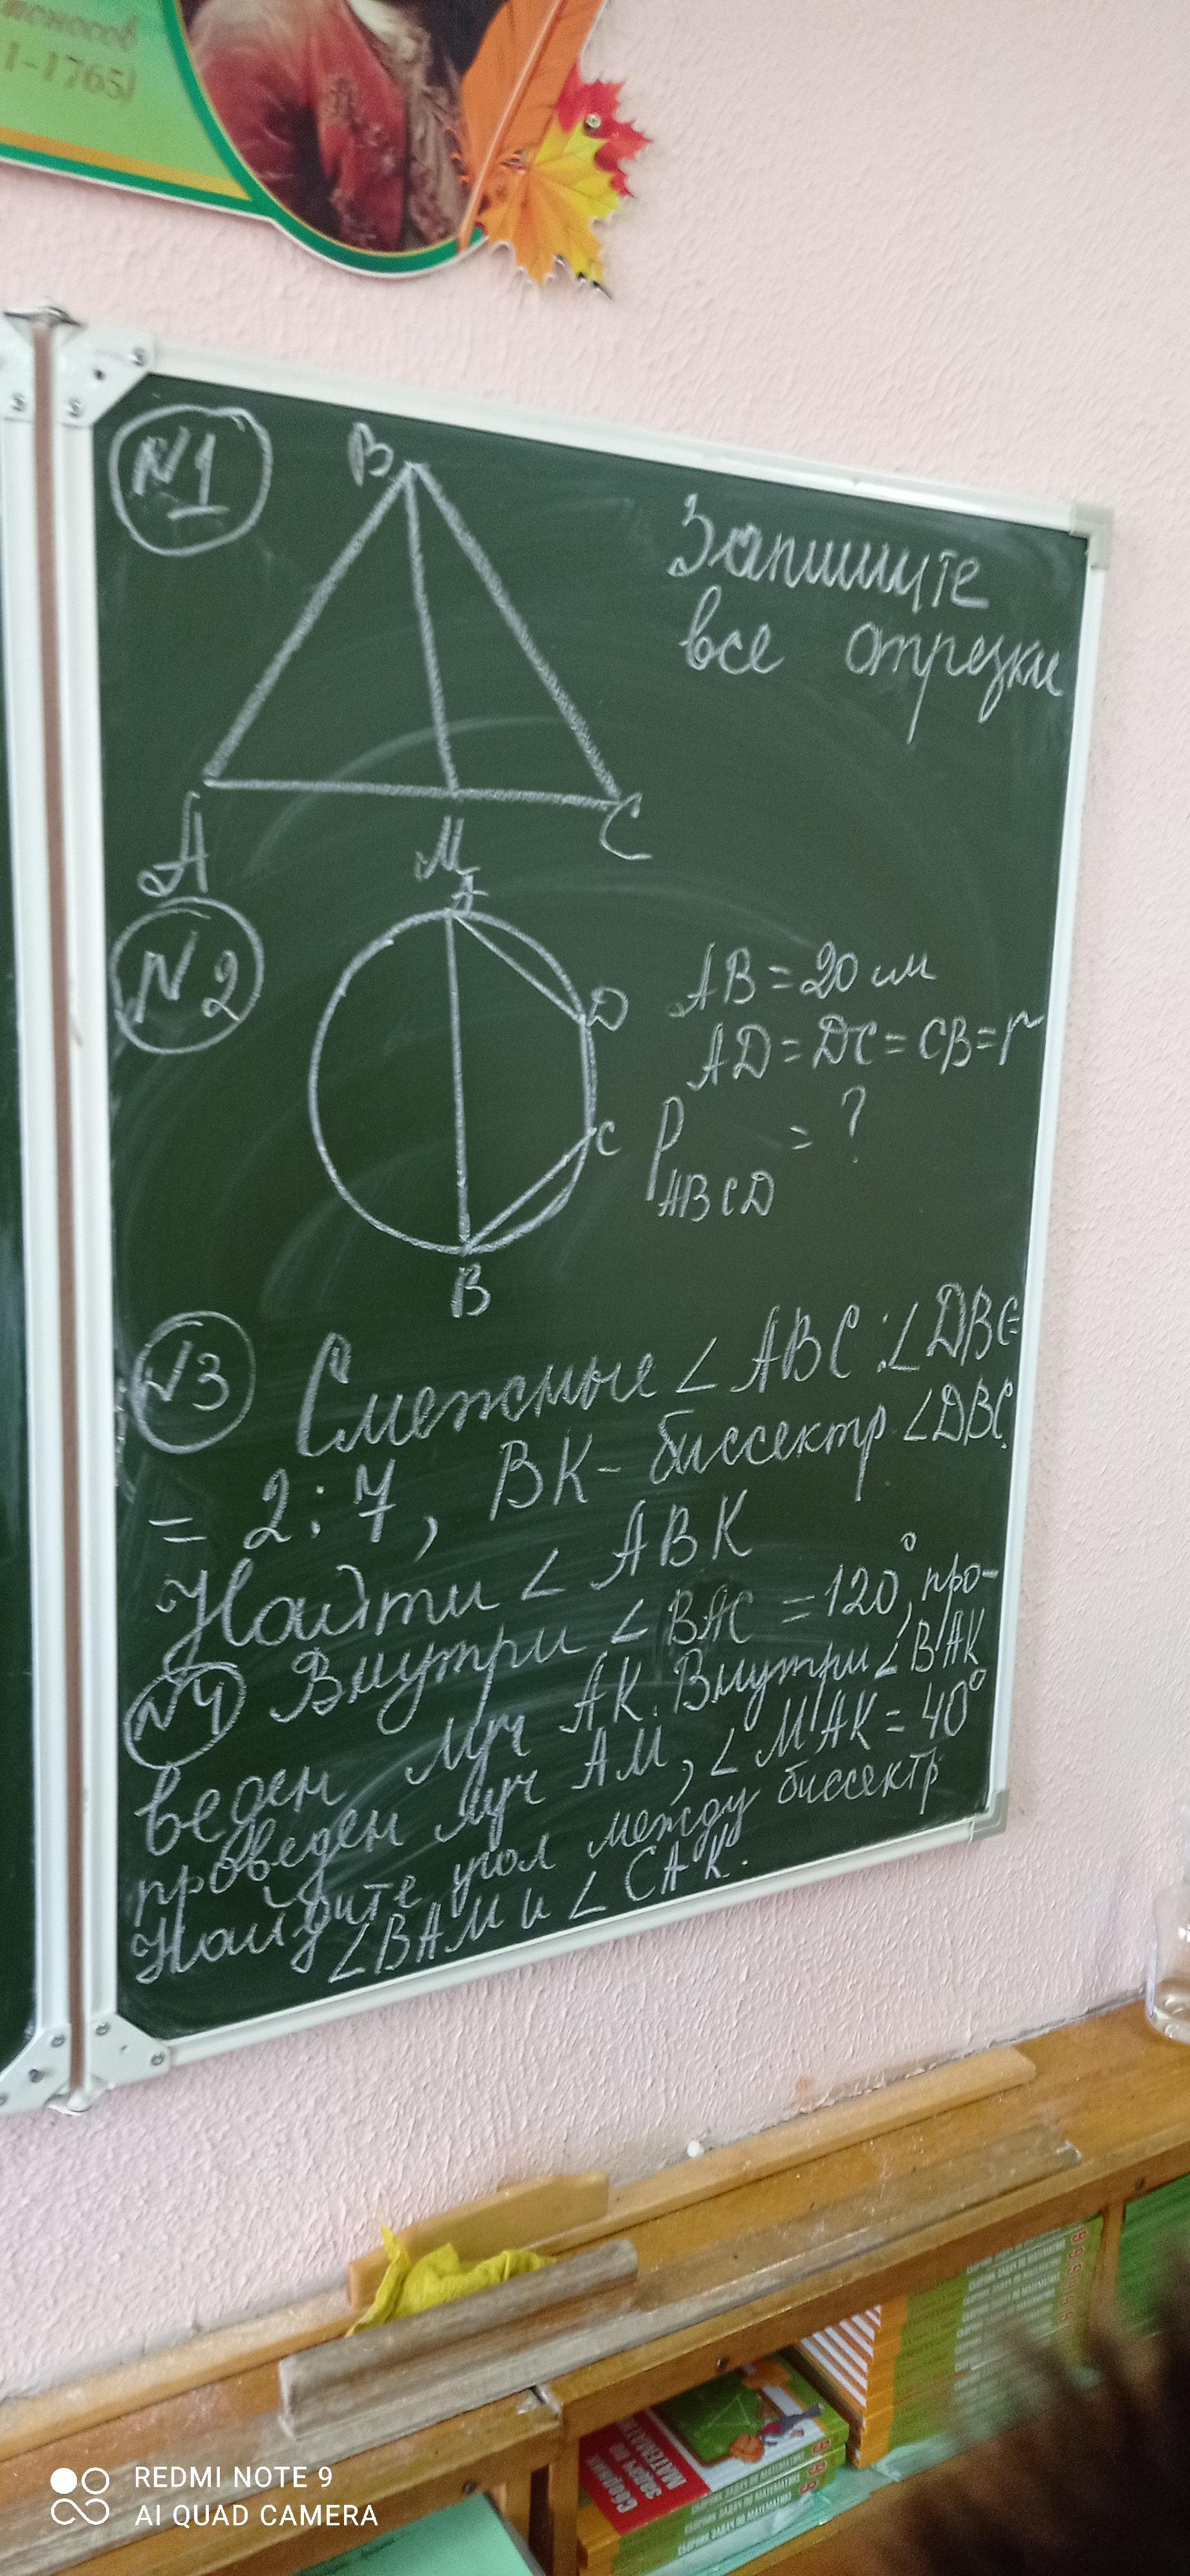 1-1765)
N1
B
Запишите
все отрезки
A
M
C
N2
A
D
C
B
AB = 20 см
AD = DC = CB = r
P ABCD = ?
N3 Смежные ∠ ABC : ∠ DBC =
= 2 : 7, BK - биссектр. ∠DBC.
Найти ∠ ABK
N4 Внутри ∠ BAC = 120°, про-
веден луч AK. Внутри ∠ BAK
проведен луч AM, ∠ MAK = 40°
Найдите угол между биссектр
∠BAM и ∠ CAK.
Сборник
задач по
МАТЕМАТИКЕ
REDMI NOTE 9
AI QUAD CAMERA